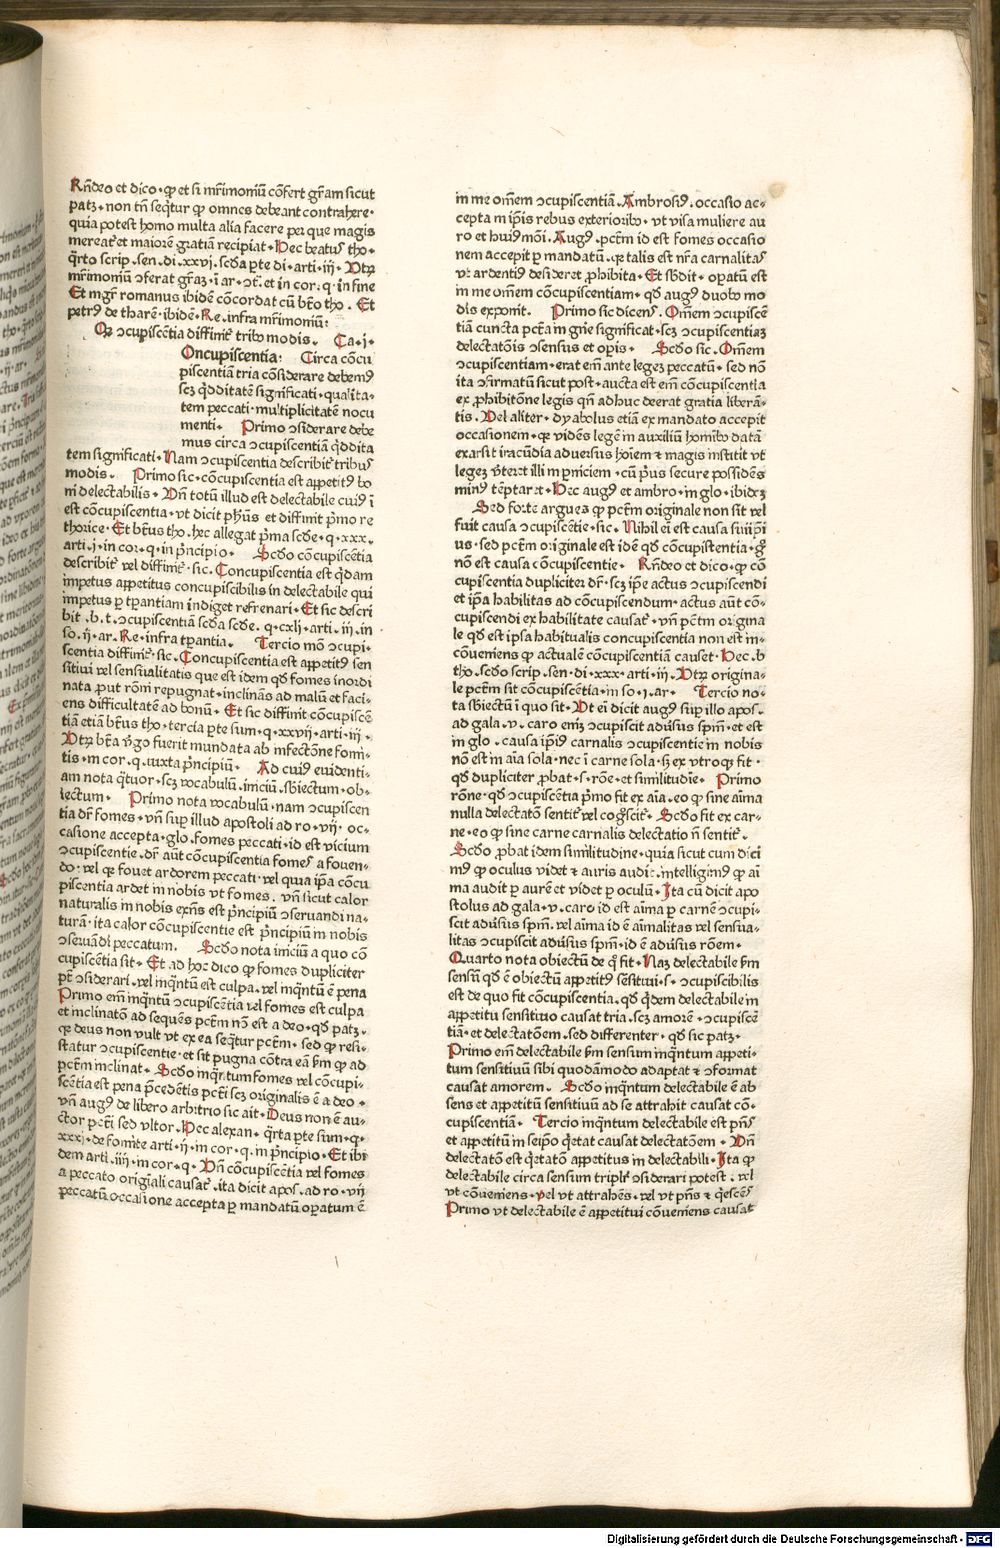 Rñdeo et dico · ꝙ et si mr̃imoniũ cõfert gr̃am sicut
patꝫ · non tñ seq̃tur ꝙ omnes debeant contrahere ·
quia potest homo multa alia facere per que magis
mereat᷑ et maiorẽ gratiã recipiat · Hec beatus tho ·
q̃rto scrip . sen . di . xxvj . scd̃a p̱te di · arti · iij · Vtꝝ
mr̃imoniũ ↄferat gr̃aꝫ · ĩ ar · ↄt̃ . et in cor · q · in fine
Et mgr̃ romanus ibidẽ cõcordat cũ bt̃o tho . Et
petrꝰ de tharẽ · ibidẽ · Re . infra mr̃imoniũ :
Qꝫ ↄcupiscẽtia diffinit᷑ tribꝰ modis . Ca · j ·
Oncupiscentia : Circa cõcu
piscentiã tria cõsiderare debemꝰ
scꝫ q̃dditatẽ significati · qualita-
tem peccati · multiplicitatẽ nocu
menti · Primo ↄsiderare debe
mus circa ↄcupiscentiã q̃ddita
tem significati · Nam ↄcupiscentia describit᷑ tribꝰ
modis . Primo sic · cõcupiscentia est appetitꝰ bo
ni delectabilis · Vñ totũ illud est delectabile cuiꝰ ĩ
est cõcupiscentia · vt dicit ph̃us et diffinit p̃mo re
thorice · Et bt̃us tho . hec allegat p̃ma scd̃e · q · xxx .
arti . j · in cor · q · in p̃ncipio · Scd̃o cõcupiscẽtia
describit᷑ vel diffinit᷑ · sic . Concupiscentia est q̃dam
impetus appetitus concupiscibilis in delectabile qui
impetus ꝑ tꝑantiam indiget refrenari · Et sic descri
bit . b . t . ↄcupiscentiã scd̃a scd̃e . q · cxlj · arti . iij . in
so . ij · ar . Re · infra tꝑantia . Tercio mõ ↄcupi·
scentia diffinit᷑ · sic . Concupiscentia est appetitꝰ sen
sitiui vel sensualitatis que est idem qd̃ fomes inordi
nata ꝓut rõni repugnat · inclinãs ad malũ et faci-
ens difficultatẽ ad bonũ · Et sic diffinit cõcupiscẽ
tiã etiã bt̃us tho · tercia p̱te sum · q · xxvij · arti · iij ·
Vtꝝ bt̃a v̓go fuerit mundata ab infectiõne fomi-
tis · in cor . q . iuxta p̃ncipiũ · Ad cuiꝰ euidenti-
am nota q̃tuor · scꝫ vocabulũ . iniciũ . sbiectum · ob-
iectum · Primo nota vocabulũ · nam ↄcupiscen
tia dr̃ fomes · vñ suꝑ illud apostoli ad ro · vij · oc-
casione accepta · glo . fomes peccati · id est vicium
ↄcupiscentie . dr̃ aũt cõcupiscentia fomes a fouen-
do · vel ꝙ fouet ardorem peccati · vel quia ip̃a cõcu
piscentia ardet in nobis vt fomes . vñ sicut calor
naturalis in nobis exñs est p̃ncipiũ ↄseruandi na-
turã · ita calor cõcupiscentie est p̃ncipiũ in nobis
ↄseruãdi peccatum . Scd̃o nota iniciũ a quo cõ
cupiscentia sit · Et ad hoc dico ꝙ fomes dupliciter
pt̃ ↄsiderari . vel inq̃ntũ est culpa . vel inq̃ntũ ẽ pena
Primo em̃ inq̃ntũ ↄcupiscẽtia vel fomes est culpa
et inclinatõ ad sequẽs pctm̃ nõ est a deo · qd̃ patꝫ .
ꝙ deus non vult vt ex ea seq̃tur pctm̃ · sed ꝙ resi-
statur ↄcupiscentie · et sit pugna cõtra eã ẜm ꝙ ad
pctm̃ inclinat · Scd̃o inq̃ntum fomes vel cõcupi-
scẽtia est pena p̃cedẽtis pctĩ scꝫ originalis ẽ a deo ·
vñ augꝰ de libero arbitrio sic ait · Deus non ẽ au-
ctor pctĩ sed vltor . Hec alexan · q̃rta p̱te sum · q ·
xxxj · de fomite arti · ij · in cor · q . in p̃ncipio · Et ibi
dem arti . iiij · in cor · q · Vñ cõcupiscẽtia vel fomes
a peccato origĩali causat᷑ . ita dicit apos . ad ro · vij
peccatũ occasione accepta ꝑ mandatũ oꝑatum ẽ
in me om̃em ↄcupiscentiã . Ambrosiꝰ . occasio ac-
cepta in ip̃is rebus exterioribꝰ · vt visa muliere au
ro et huiꝰmõi . Augꝰ . pctm̃ id est fomes occasio
nem accepit ꝑ mandatũ . ꝙ talis est nr̃a carnalitas
vt ardentiꝰ desideret ꝓhibita · Et sbdit · oꝑatũ est
in me om̃em cõcupiscentiam · qd̃ augꝰ duobꝰ mo
dis exponit . Primo sic dicens . Om̃em ↄcupiscẽ
tiã cuncta pctã in gñe significat · scꝫ ↄcupiscentiaꝫ
delectatõis ↄsensus et oꝑis · Scd̃o sic . Om̃em
ↄcupiscentiam · erat em̃ ante legeꝫ peccatũ · sed nõ
ita ↄfirmatũ sicut post · aucta est em̃ cõcupiscentia
ex ꝓhibitõne legis qñ adhuc deerat gratia liberã-
tis . Vel aliter · dyabolus etiã ex mandato accepit
occasionem · ꝙ vidẽs legẽ in auxiliũ homibꝰ datã
exarsit iracũdia aduersus hoiem ⁊ magis institit vt
legeꝫ v̓teret illi in ꝑniciem · cũ p̓us secure possidẽs
minꝰ tẽptaret · Hec augꝰ et ambro · in glo · ibideꝫ
Sed forte argues ꝙ pctm̃ originale non sit vel
fuit causa ↄcupiscẽtie · sic · Nihil ei est causa suiipi
us · sed pctm̃ originale est idẽ qd̃ cõcupistentia · g̊
nõ est causa cõcupiscentie · Rñdeo et dico · ꝙ cõ
cupiscentia dupliciter dr̃ · scꝫ ip̃e actus ↄcupiscendi
et ip̃a habilitas ad cõcupiscendum · actus aũt cõ-
cupiscendi ex habilitate causat᷑ · vñ pctm̃ origina
le qd̃ est ipsa habitualis concupiscentia non est in-
cõueniens ꝙ actualẽ cõcupiscentiã causet · Hec . b
tho . scd̃o scrip . sen · di · xxx · arti · iij . Vtꝝ origina-
le pctm̃ sit cõcupiscẽtia · in so · j . ar · Tercio no-
ta sbiectũ ĩ quo sit · Vt eĩ dicit augꝰ suꝑ illo apos .
ad gala . v . caro eniꝫ ↄcupiscit aduẽsus spm̃ · et est
in glo . causa ip̃iꝰ carnalis ↄcupiscentie in nobis
nõ est in aĩa sola · nec ĩ carne sola · sꝫ ex vtroqꝫ fit ·
qd̃ dupliciter ꝓbat · s · rõe · et similitudĩe · Primo
rõne · qd̃ ↄcupiscẽtia p̃mo fit ex aĩa . eo ꝙ sine aĩma
nulla delectatõ sentit᷑ vel cog̃scit᷑ · Scd̃o fit ex car-
ne · eo ꝙ sine carne carnalis delectatio ñ sentit᷑ .
Scd̃o ꝓbat idem similitudine · quia sicut cum dici
mꝰ ꝙ oculus videt ⁊ auris audit . intelligimꝰ ꝙ aĩ
ma audit ꝑ aurẽ et videt ꝑ oculũ · Ita cũ dicit apo
stolus ad gala · v . caro id est aĩma ꝑ carnẽ ↄcupi-
scit aduẽsus spm̃ . vel aĩma id ẽ aĩmalitas vel sensua-
litas ↄcupiscit aduẽsus spm̃ · id ẽ aduẽsus rõem ·
Quarto nota obiectũ de q̃ fit · Naꝫ delectabile ẜm
sensũ qd̃ ẽ obiectũ appetitꝰ sẽsitiui · s · ↄcupiscibilis
est de quo fit cõcupiscentia . qd̃ q̃dem delectabile in
appetitu sensitiuo causat tria . scꝫ amorẽ · ↄcupiscẽ
tiã · et delectatõem . sed differenter · qd̃ sic patꝫ ·
Primo em̃ delectabile ẜm sensum inq̃ntum appeti-
tum sensitiuũ sibi quodãmodo adaptat ⁊ ↄformat
causat amorem . Scd̃o inq̃ntum delectabile ẽ ab
sens et appetitũ sensitiuũ ad se attrahit causat cõ-
cupiscentiã · Tercio inq̃ntum delectabile est p̃ns
et appetitũ in seip̃o q̃etat causat delectatõem · Vñ
delectatõ est q̃etatõ appetitus in delectabili · Ita ꝙ
delectabile circa sensum triplr̃ ↄsiderari potest . vel
vt cõueniens · vel vt attrahẽs . vel vt p̃ns ⁊ q̃escẽs
Primo vt delectabile ẽ appetitui cõueniens causat
Digitalisierung gefördert durch die Deutsche Forschungsgemeinschaft - DFG